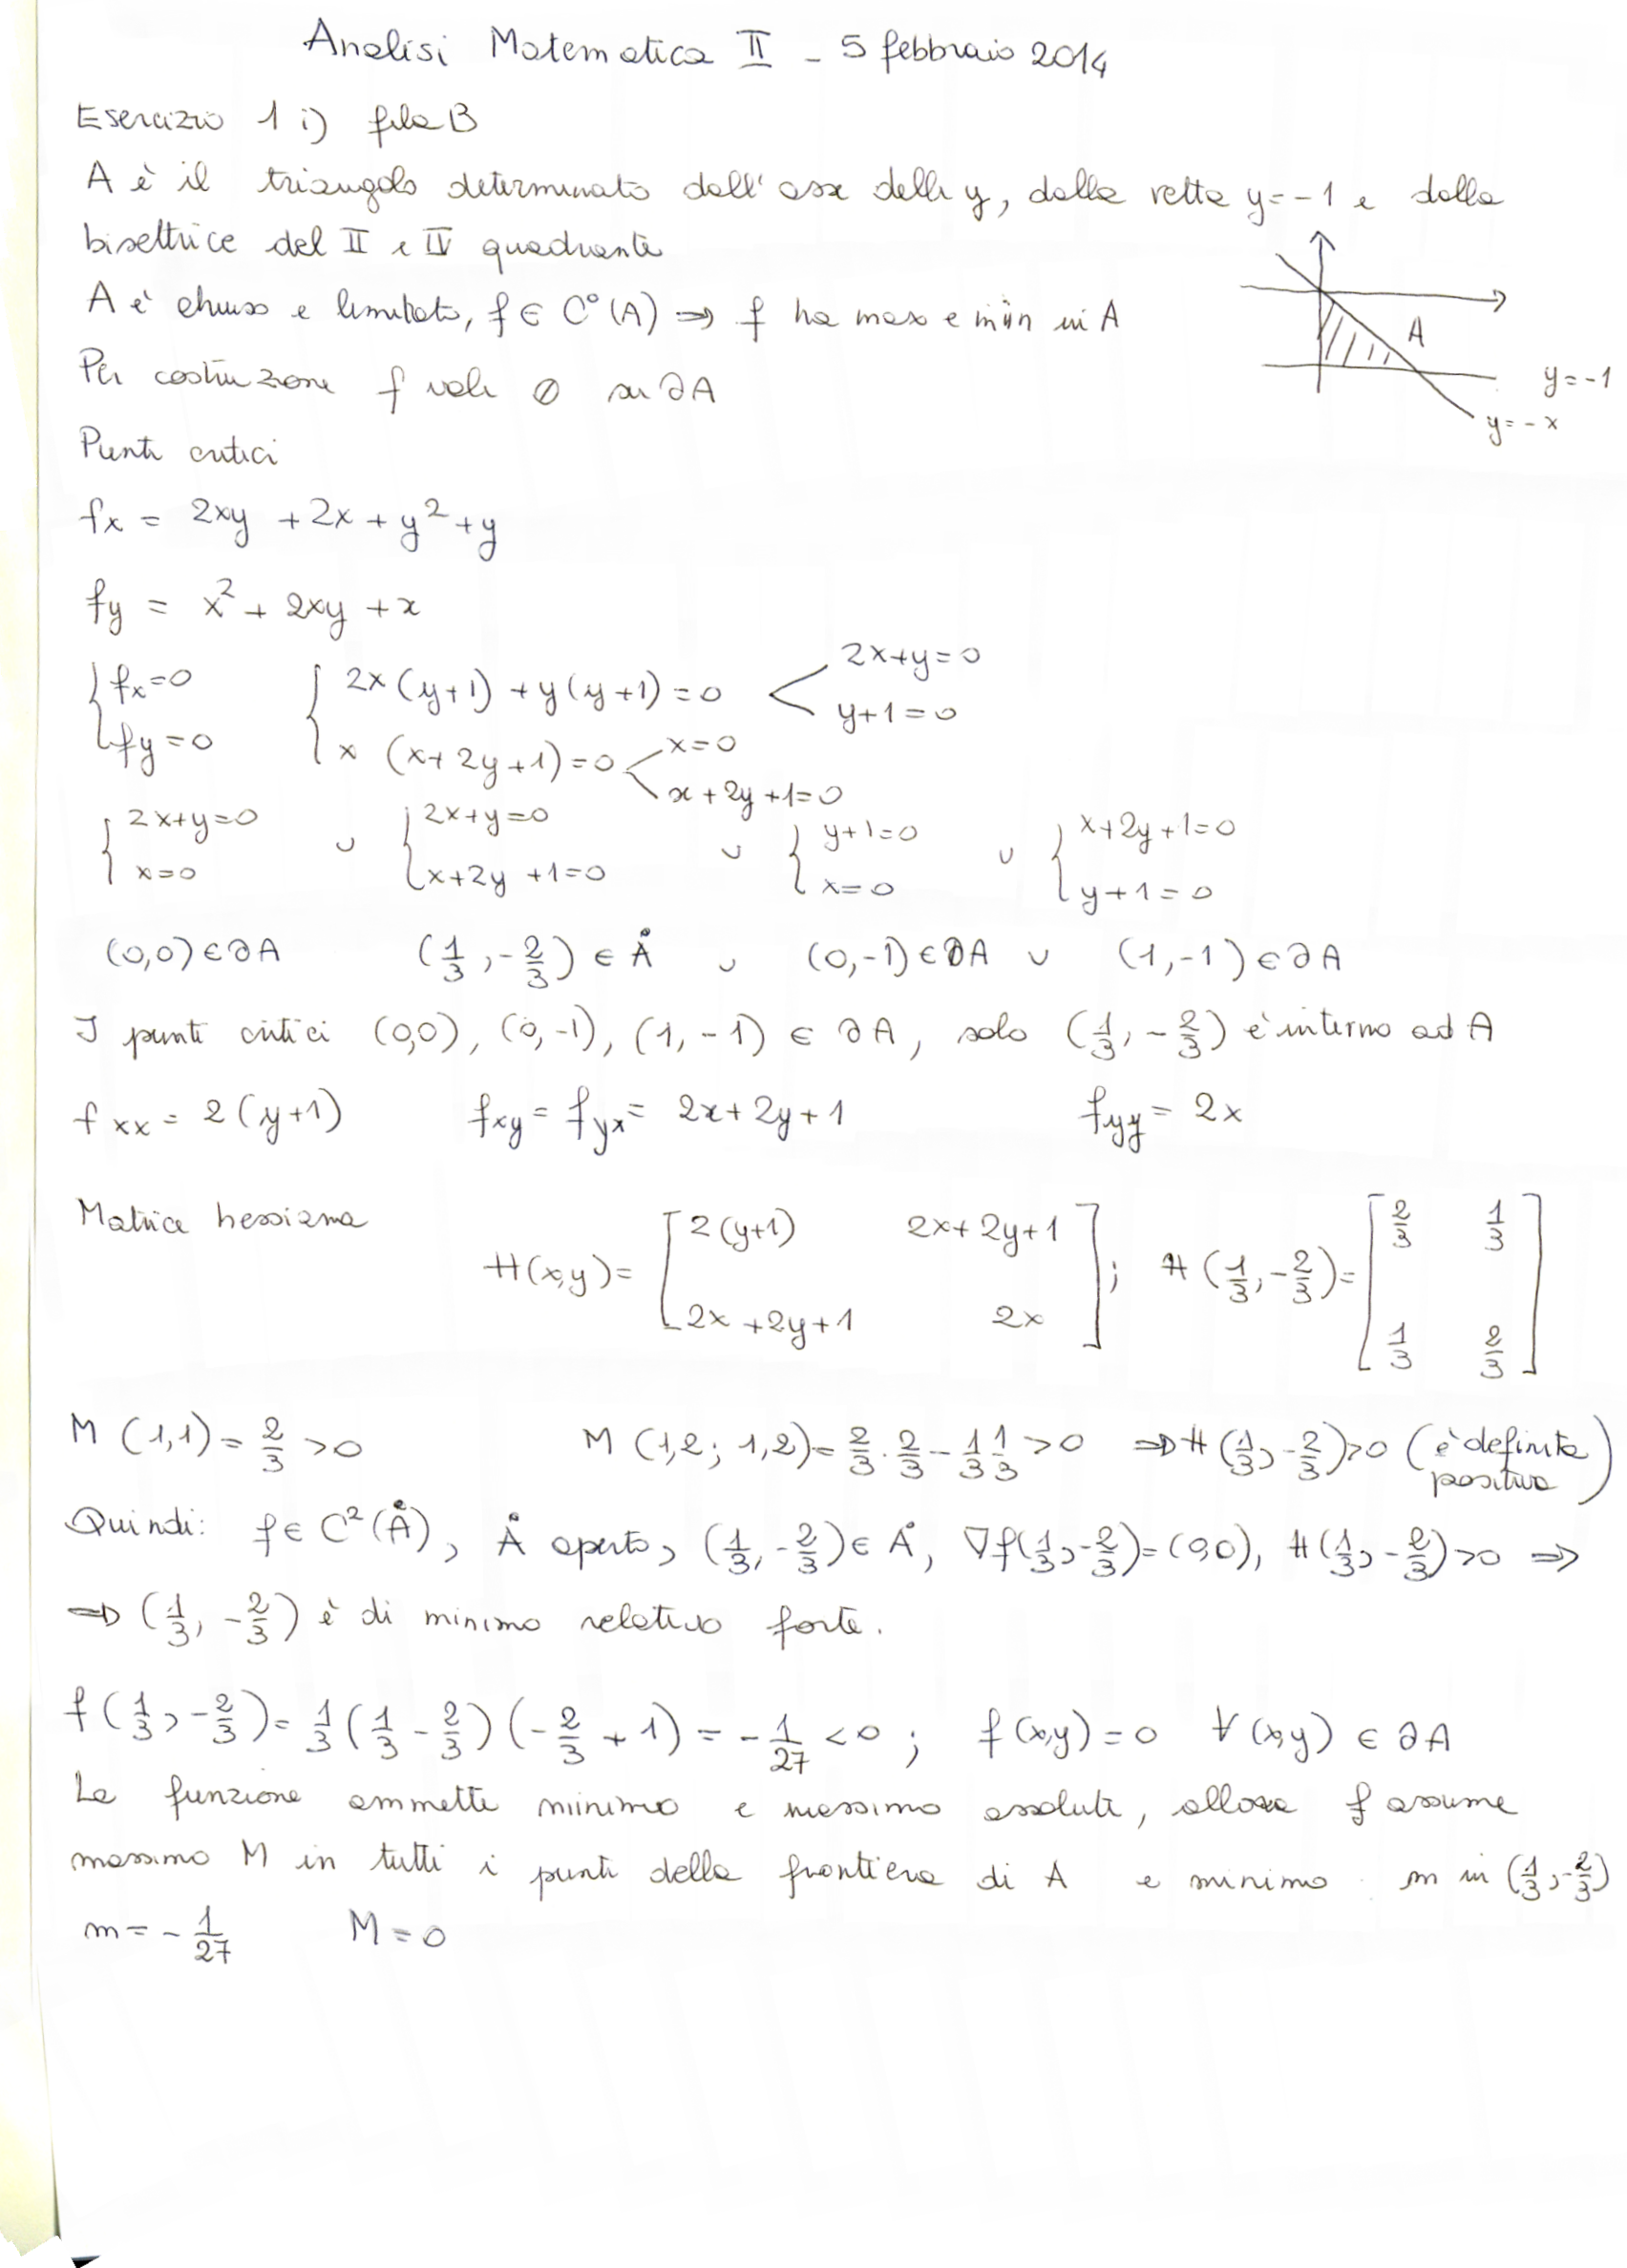 Analisi Matematica II - 5 febbraio 2014
Esercizio 1 i) fila B
A è il triangolo determinato dall'asse delle y, dalla retta y=-1 e dalla
bisettrice del II e IV quadrante
A è chiuso e limitato, f ∈ C°(A) ⇒ f ha max e min in A
A
Per costruzione f vale 0 su ∂A
y=-1
y=-x
Punti critici
fx = 2xy + 2x + y² + y
fy = x² + 2xy + x
{ fx=0 { 2x(y+1) + y(y+1) = 0 < 2x+y=0
y+1=0
fy=0 x (x+2y+1)=0 < x=0
x+2y+1=0
{ 2x+y=0 ∪ { 2x+y=0 ∪ { y+1=0 ∪ { x+2y+1=0
x=0 x+2y+1=0 x=0 y+1=0
(0,0)∈∂A (1/3, -2/3) ∈ Å ∪ (0,-1)∈∂A ∪ (1,-1)∈∂A
I punti critici (0,0), (0,-1), (1,-1) ∈ ∂A, solo (1/3, -2/3) è interno ad A
fxx = 2(y+1) fxy = fyx = 2x+2y+1 fyy = 2x
Matrice hessiana
H(x,y) = [ 2(y+1) 2x+2y+1 ; 2x+2y+1 2x ] ; H(1/3, -2/3) = [ 2/3 1/3 ; 1/3 2/3 ]
M(1,1) = 2/3 > 0 M(1,2; 1,2) = 2/3 · 2/3 - 1/3 1/3 > 0 ⇒ H(1/3, -2/3)>0 (è definita positiva)
Quindi: f ∈ C²(Å), Å aperto, (1/3, -2/3) ∈ Å, ∇f(1/3, -2/3) = (0,0), H(1/3, -2/3)>0 ⇒
⇒ (1/3, -2/3) è di minimo relativo forte.
f(1/3, -2/3) = 1/3 (1/3 - 2/3) (-2/3 + 1) = -1/27 < 0 ; f(x,y) = 0 ∀(x,y) ∈ ∂A
La funzione ammette minimo e massimo assoluti, allora f assume
massimo M in tutti i punti della frontiera di A e minimo m in (1/3, -2/3)
m = -1/27 M = 0